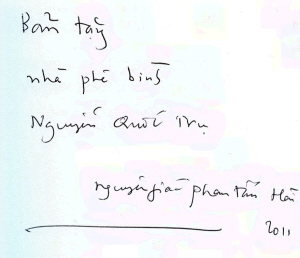 Bản tặng
nhà phê bình
Nguyễn Quốc Trụ
Nguyễn gia- phan tấn Hải
2011